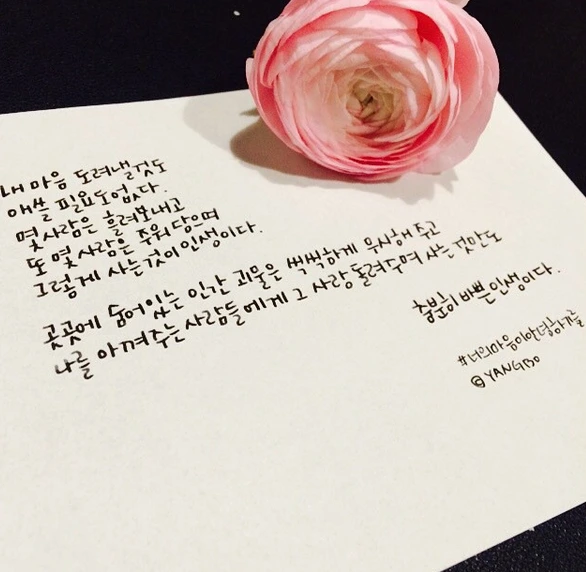 내 마음 도려낼것도
애쓸 필요도없다.
몇사람은 흘려보내고
또 몇 사람은 주워 담으며
그렇게 사는것이 인생이다.
곳곳에 숨어있는 인간 괴물은 씩씩하게 무시해 주고
나를 아껴주는 사람들에게 그 사랑 돌려주며 사는것만도
충분히 바쁜 인생이다.
#너의마음이안녕하기를
@YANGBO